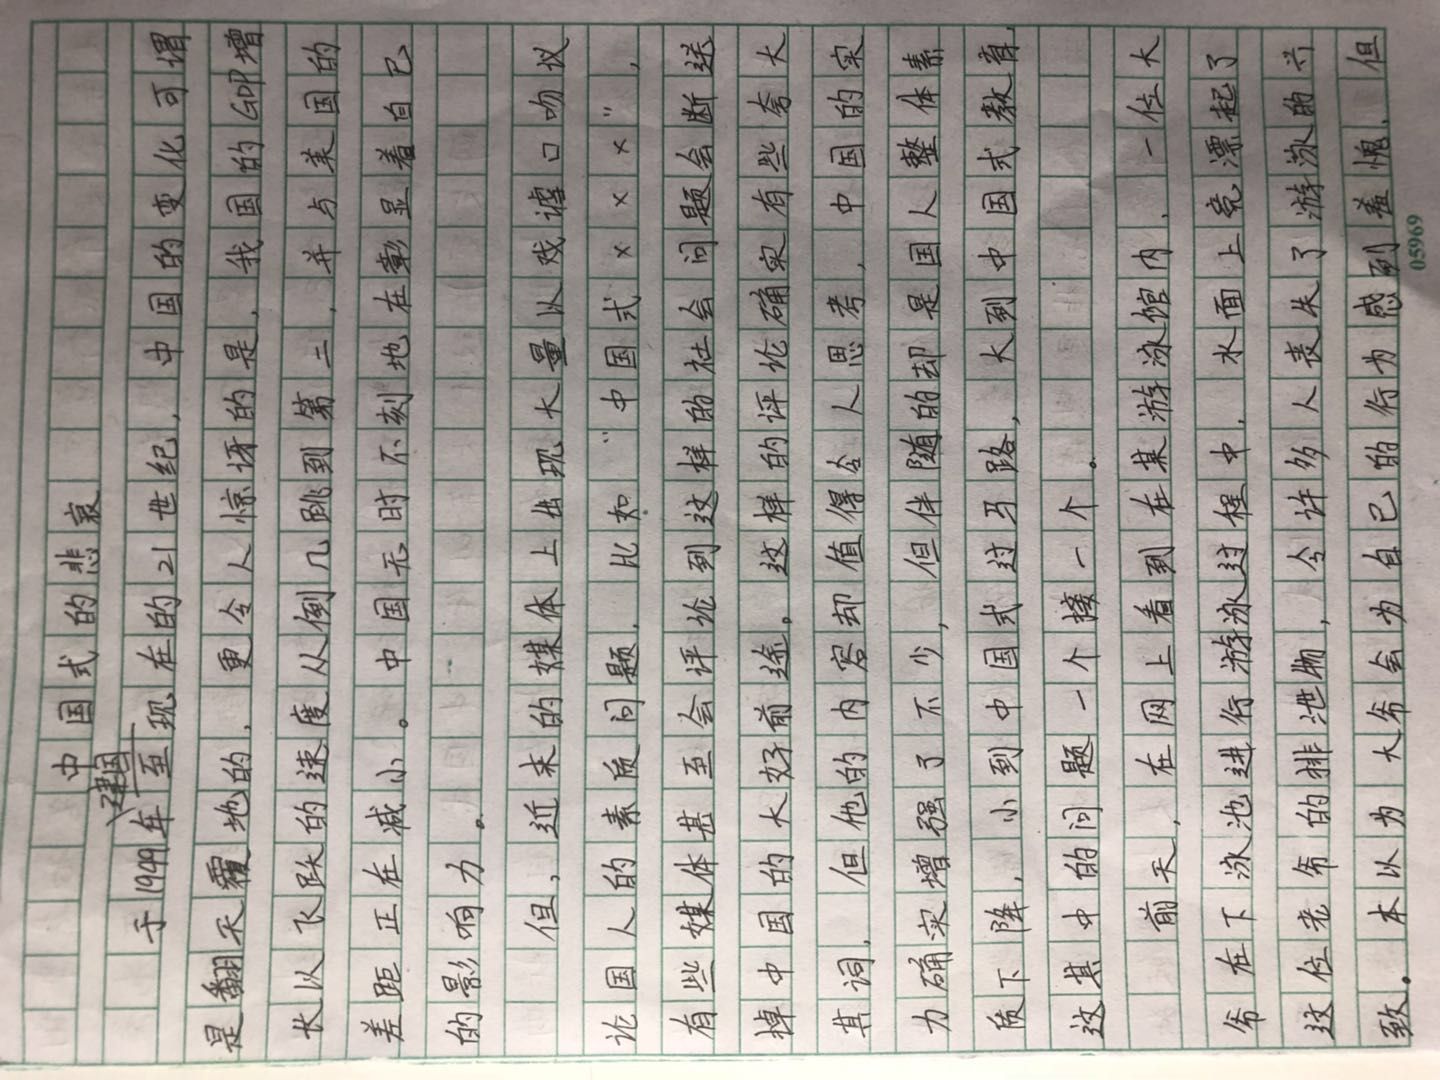 中国式的悲哀
建国
于1999年至现在的21世纪，中国的变化可谓
是翻天覆地的，更令人惊讶的是，我国的GDP增
长以飞跃的速度从倒几跳到第二，并与美国的
差距正在减小。中国无时不刻地在彰显着自己
的影响力。
但，近来的媒体上出现大量以戏谑口吻议
论国人的素质问题，比如“中国式××××”，
有些媒体甚至会评论到这样的社会问题会断送
掉中国的大好前途。这样的评论确实有些夸大
其词，但他的内容却值得令人思考，中国的实
力确实增强了不少，但伴随的却是国人整体素
质下降，小到中国式过马路，大到中国式教育，
这其中的问题一个接一个。
前天，在网上看到在某游泳馆内，一位大
爷在下泳池进行游泳过程中，水面上竟漂起了
这位老爷的排泄物，令许多人丧失了游泳的兴
致。本以为大爷会为自己的行为感到羞愧，但
05969